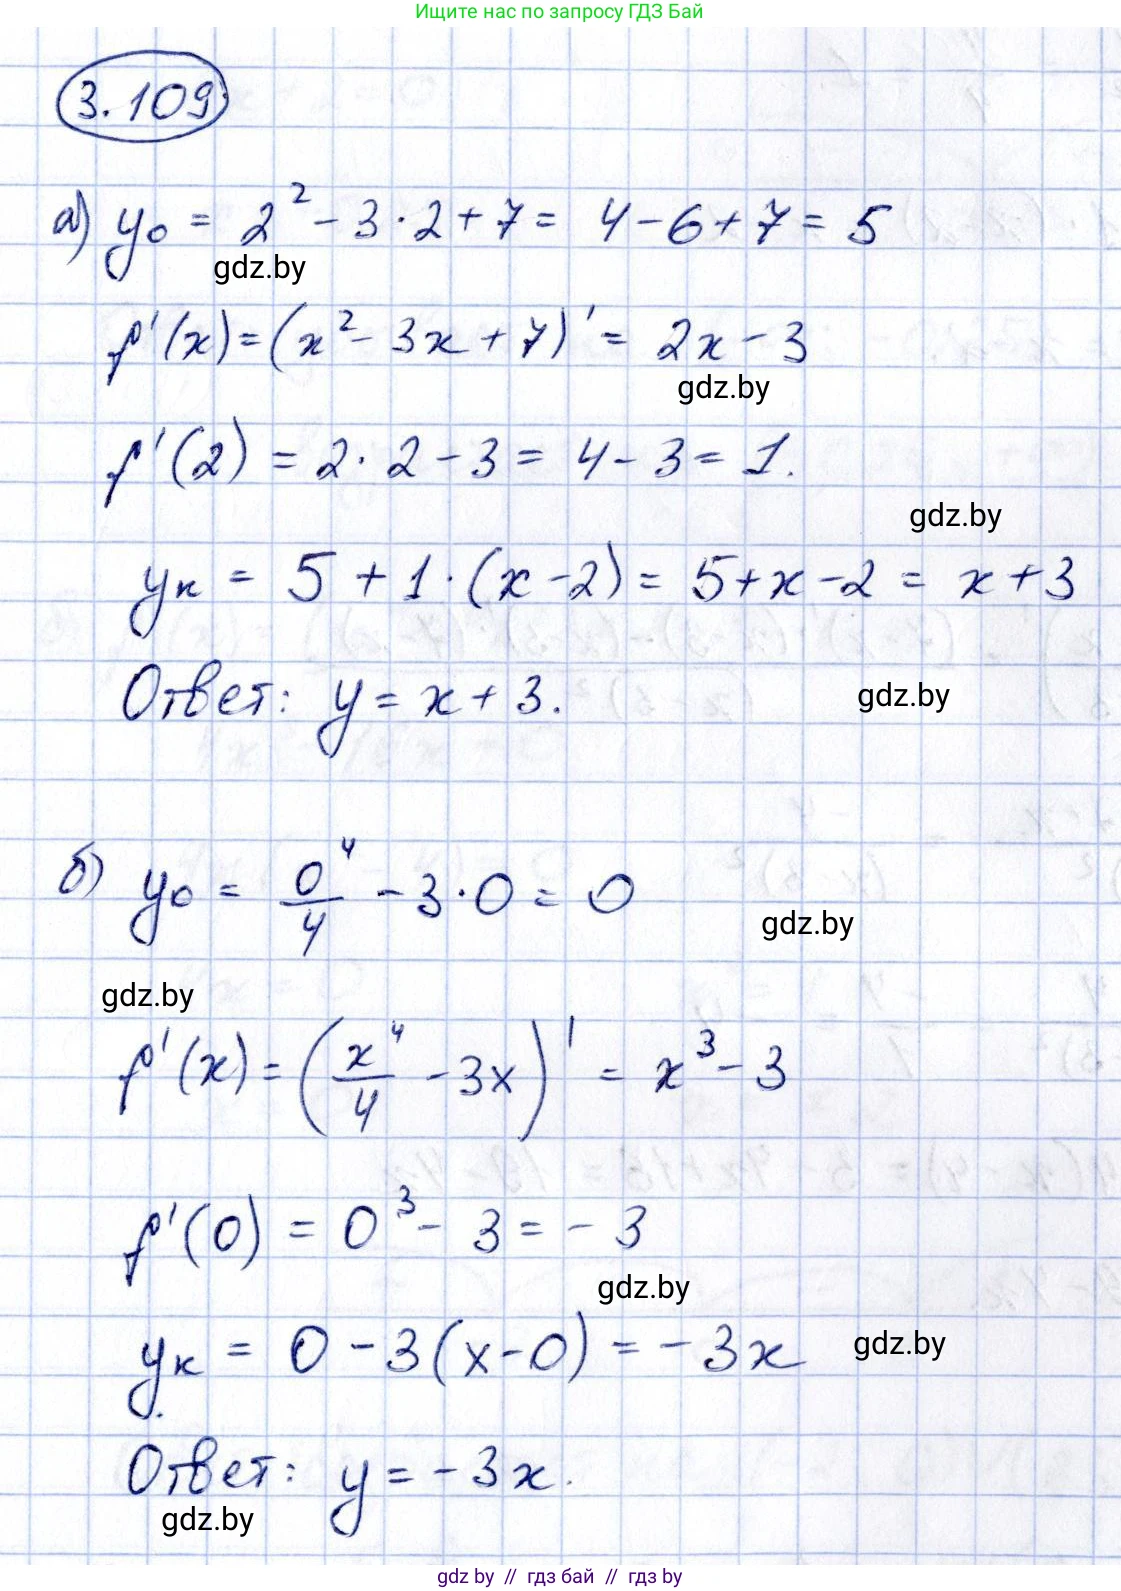 Ищите нас по запросу ГДЗ Бай
3.109
а) y₀ = 2² - 3·2 + 7 = 4 - 6 + 7 = 5
gdz.by
f'(x) = (x² - 3x + 7)' = 2x - 3
gdz.by
f'(2) = 2·2 - 3 = 4 - 3 = 1.
gdz.by
yк = 5 + 1·(x - 2) = 5 + x - 2 = x + 3
Ответ: y = x + 3.
gdz.by
б) y₀ = 0⁴/4 - 3·0 = 0
gdz.by
gdz.by
f'(x) = (x⁴/4 - 3x)' = x³ - 3
f'(0) = 0³ - 3 = -3
gdz.by
yк = 0 - 3(x - 0) = -3x
gdz.by
Ответ: y = -3x.
gdz.by
gdz by // гдз бай // гдз by